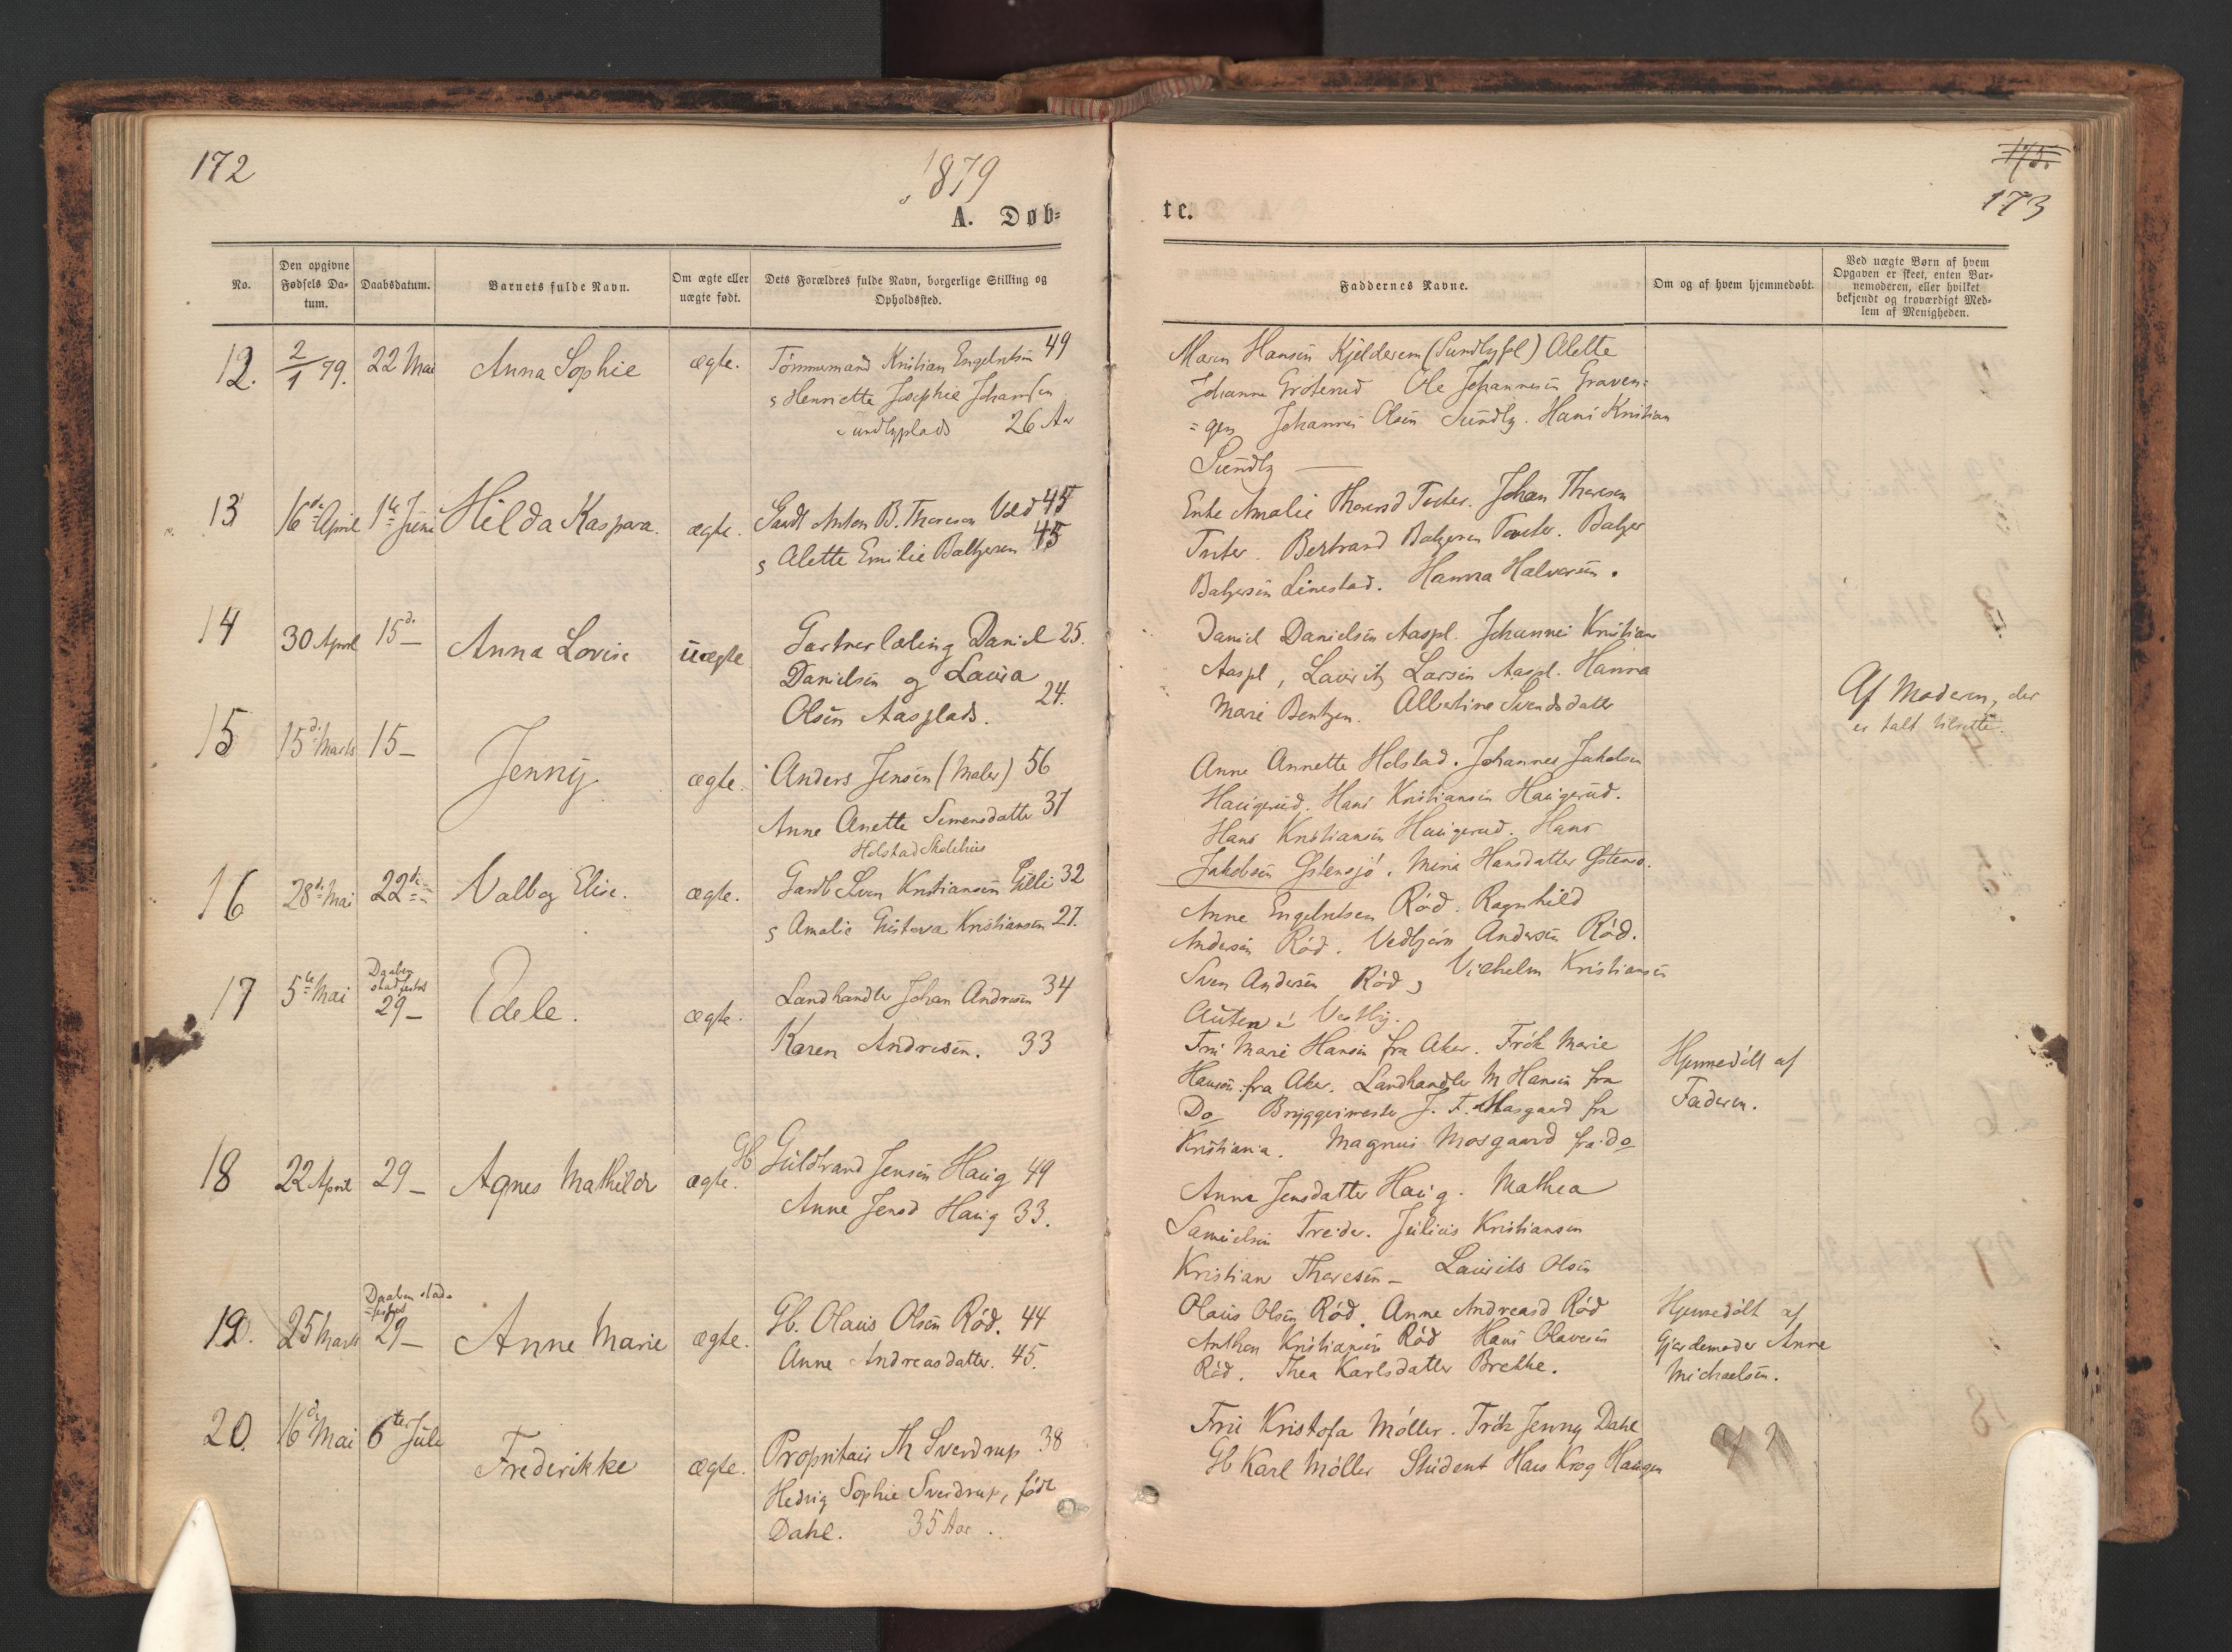 172
1879
A. Døb-
No.
Den opgivne Fødsels Da-tum.
Daabsdatum.
Barnets fulde Navn.
Om ægte eller uægte født.
Dets Forældres fulde Navn, borgerlige Stilling og Opholdssted.
12.
2/1 79.
22 Mai
Anna Sophie
ægte.
Tømmermand Kristian Engebretsen 49
Henriette Josephie Johansen
Sundbyplads 26 Aar
13
16de April
1te Juni
Hilda Kaspara.
ægte.
Gaardb Anton B. Thoresen Vold 45
Alette Emilie Baltzersen 45
14
30 April
15de —
Anna Lovise
uægte
Gartnerlærling Daniel 25.
Danielsen og Laura
Olsen Aasplads. 24.
15
15de Marts
15 —
Jenny
ægte.
Anders Jensen (Maler) 56
Anne Anette Simensdatter 37
Holstad Skolehus
16
28de Mai
22de
Valbog Elise.
ægte.
Gaardb Sven Kristiansen 32
Amalie Gustava Kristiansen 27.
17
5te Mai
Daaben
stadfæstet
29 —
Edele.
ægte.
Landhandler Johan Andresen 34
Karen Andresen. 33
18
22 April
29 —
Agnes Mathilde
ægte.
Gb Guldbrand Jensen Haug 49
Anne Jensd Haug 33.
19.
25 Marts
Daaben stad-
=fæstet
29 —
Anne Marie
ægte.
Gb. Olaus Olsen Rød. 44
Anne Andreasdatter. 45.
20.
16de Mai
6te Juli
Frederikke
ægte.
Proprietair Th Sverdrup 38
Hedvig Sophie Sverdrup, født
Dahl. 35 Aar.
175.
173
te.
Faddernes Navne.
Om og af hvem hjemmedøbt.
Ved uægte Børn af hvem
Opgaven er skeet, enten Bar-
nemoderen, eller hvilket
bekjendt og troværdigt Med-
lem af Menigheden.
Maren Hansen Kjølderen (Sundbypl) Alette
Johanne Groterud Ole Johannesen Graven=
=gen Johannes Olsen Sundby. Hans Kristian
Sundby —
Enke Amalie Thoresd Tveter. Johan Thoresen
Tveter. Bertrand Balzersen Tveter. Balzer
Balzersen Linestad. Hanna Halvorsen.
Daniel Danielsen Aaspl. Johannes Kristian
Aaspl, Lauritz Larsen Aaspl. Hanna
Marie Bentzen. Albertine Svendsdatter
Af Moderen, der
er talt tilrette.
Anne Annette Holstad. Johannes Jakobsen
Haugerud. Hans Kristiansen Haugerud.
Hans Kristiansen Haugerud. Hans
Jakobsen Østensjø. Mina Hansdatter
Anne Engebretsen Rød. Ragnhild
Andersen Rød. Vedbjørn Andersen Rød.
Sven Andersen Rød, Vilhelm Kristiansen
Vestby.
Fru Marie Hansen fra Aker. Frøk Marie
Hansen fra Aker. Landhandler M Hansen fra
Do Bryggerimester J. F. Mosgaard fra
Kristiania. Magnus Mosgaard fra do
Hjemmedøbt af
Faderen.
Anne Jensdatter Haug. Mathea
Samuelsen Treider. Julius Kristiansen
Kristian Thoresen — Laurits Olsen
Olaus Olsen Rød. Anne Andreasd Rød
Anthon Kristiansen Rød Hans Olavesen
Rød. Thea Karlsdatter Brekke.
Hjemmedøbt af
Gjordemoder Anne
Michaelsen.
Fru Kristofa Møller. Frøk Jenny Dahl
Gb Karl Møller Student Hans Krog Haugen